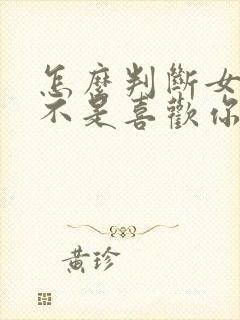 怎麼判斷女
不是喜歡你
黃珍